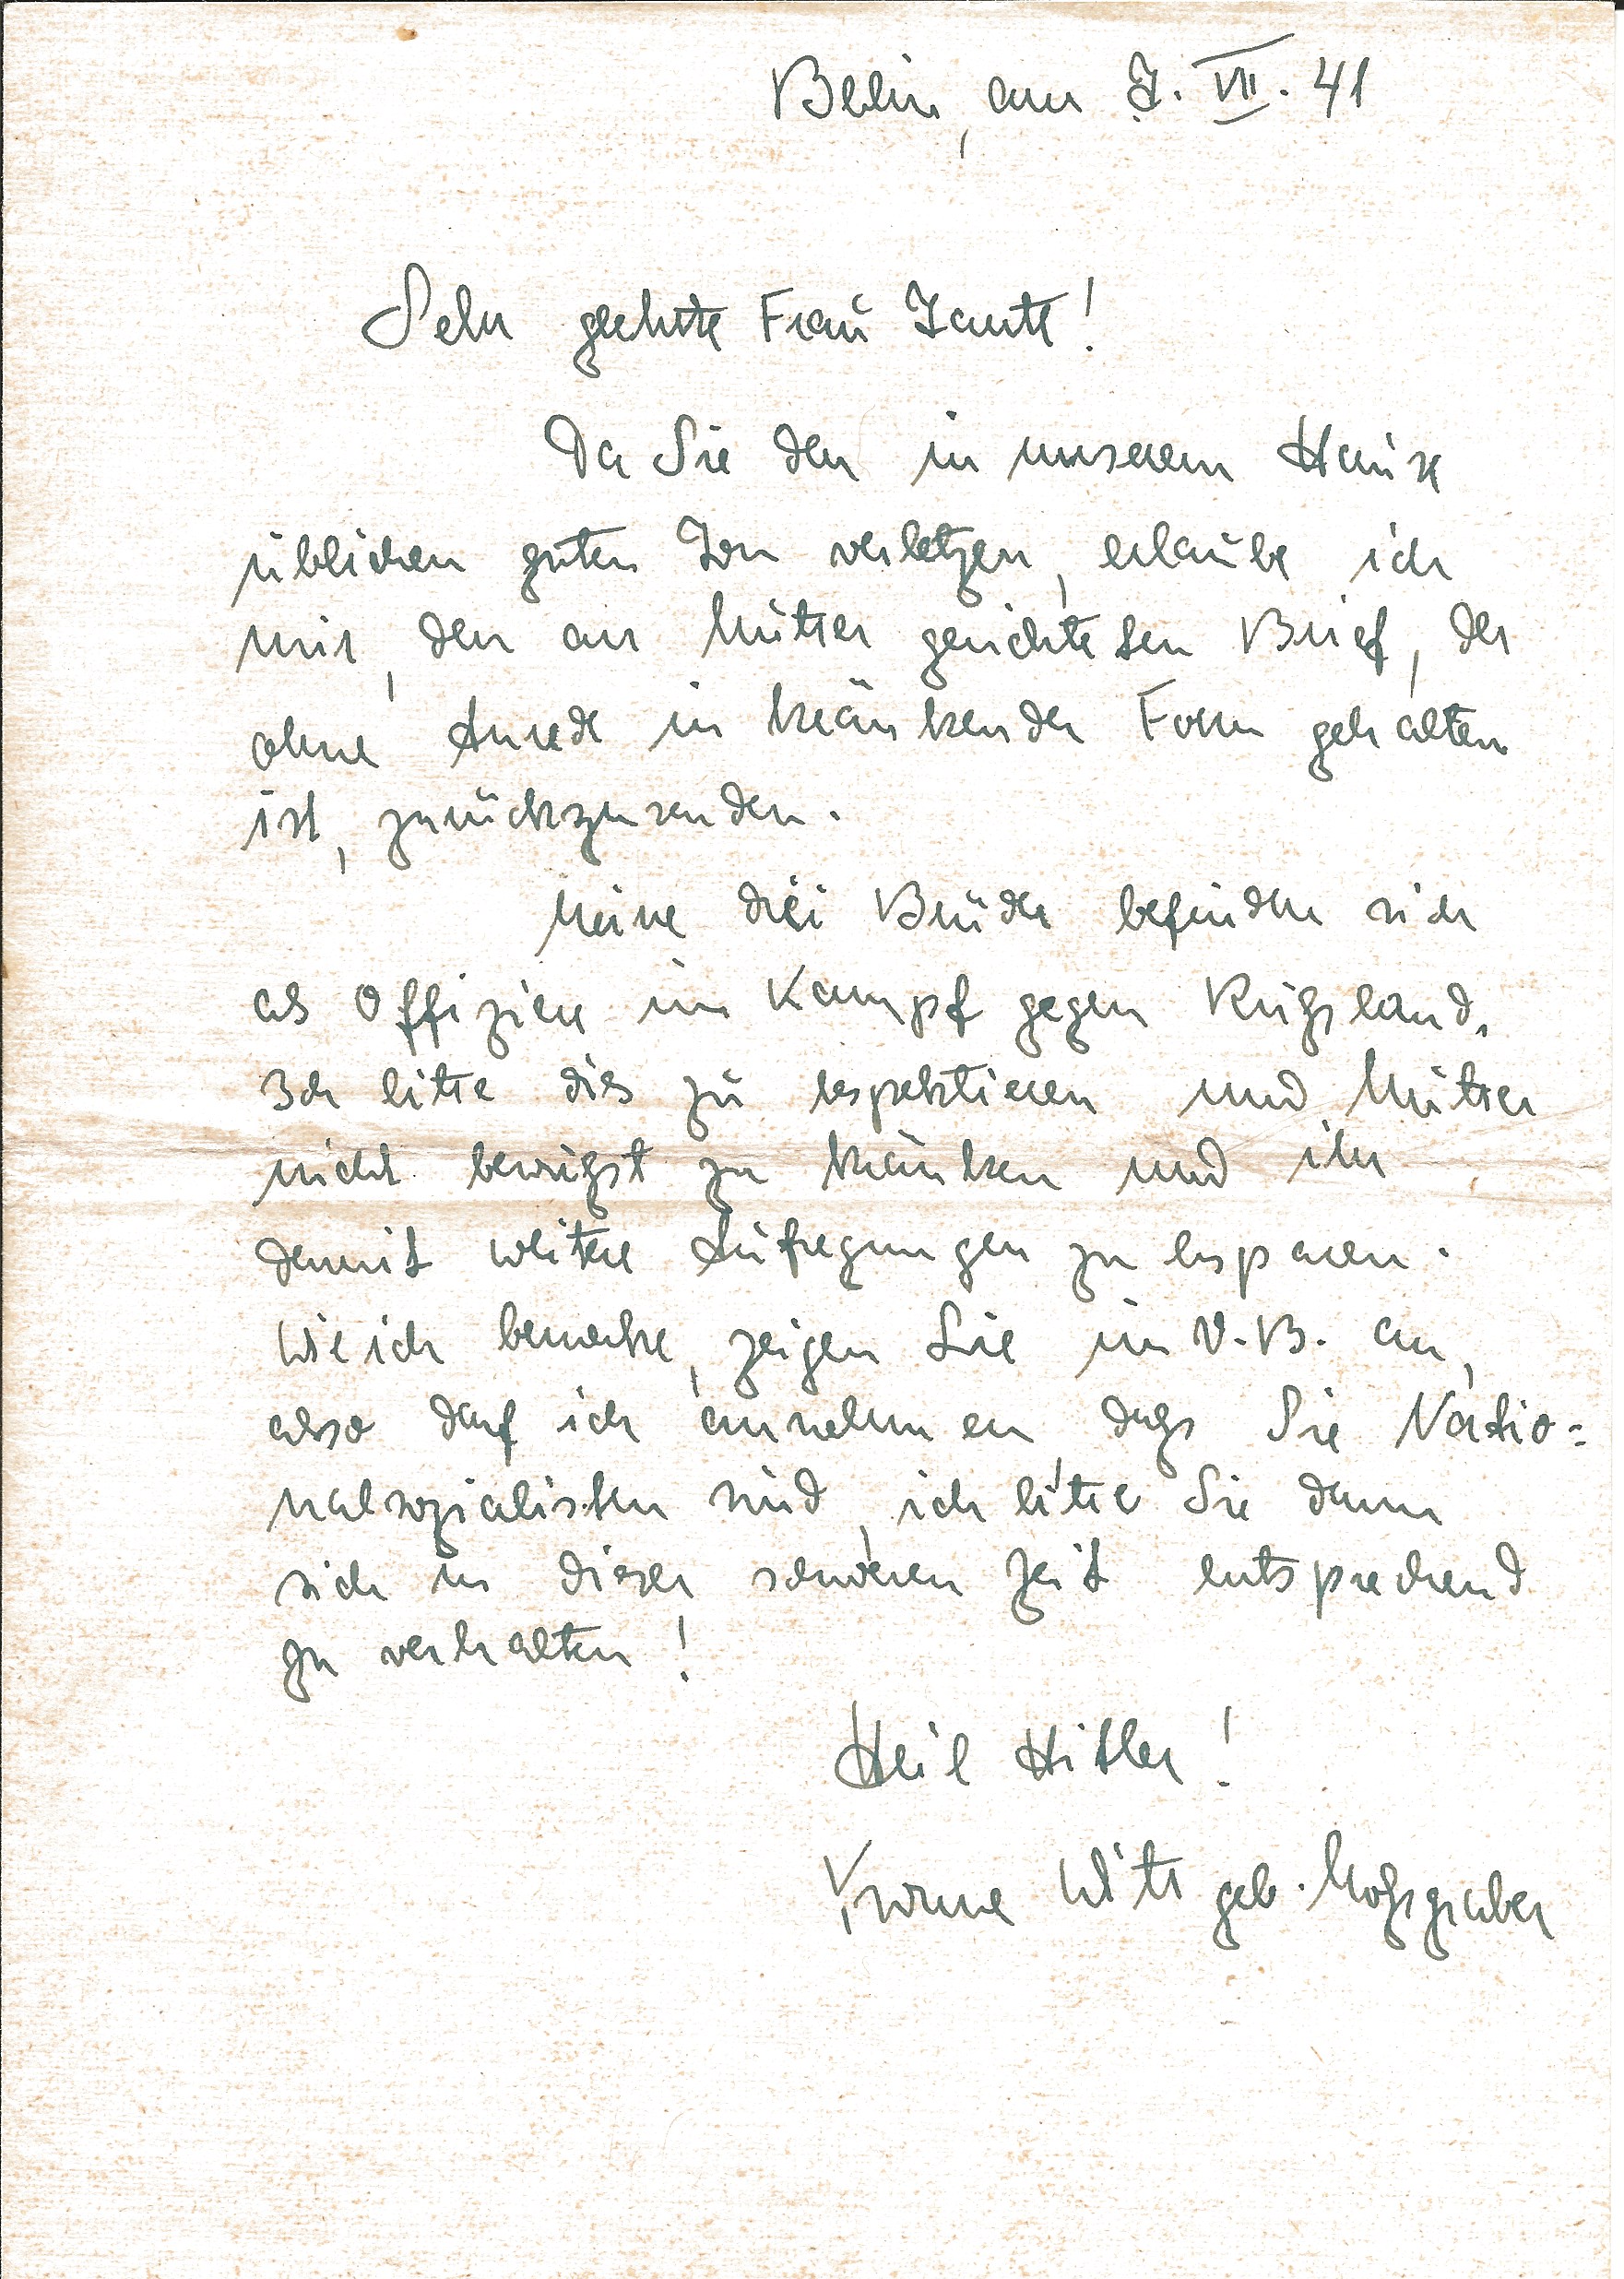 Berlin, am 7. VII. 41
Sehr geehrte Frau Tante!
Da Sie den in unserem Hause
üblichen guten Ton verletzen, erlaube ich
mir, den an Mutter gerichteten Brief, der
ohne Anrede in kränkender Form gehalten
ist, zurückzusenden.
Meine drei Brüder befinden sich
als Offiziere im Kampf gegen Rußland.
Ich bitte dies zu respektieren und Mutter
nicht bewußt zu kränken und ihr
damit weitere Aufregungen zu ersparen.
Wie ich bemerke, zeigen Sie im V.B. an,
also darf ich annehmen, daß Sie Natio=
nalsozialisten sind, ich bitte Sie dann
sich in dieser schweren Zeit entsprechend
zu verhalten!
Heil Hitler!
Witt geb. Moßgraber